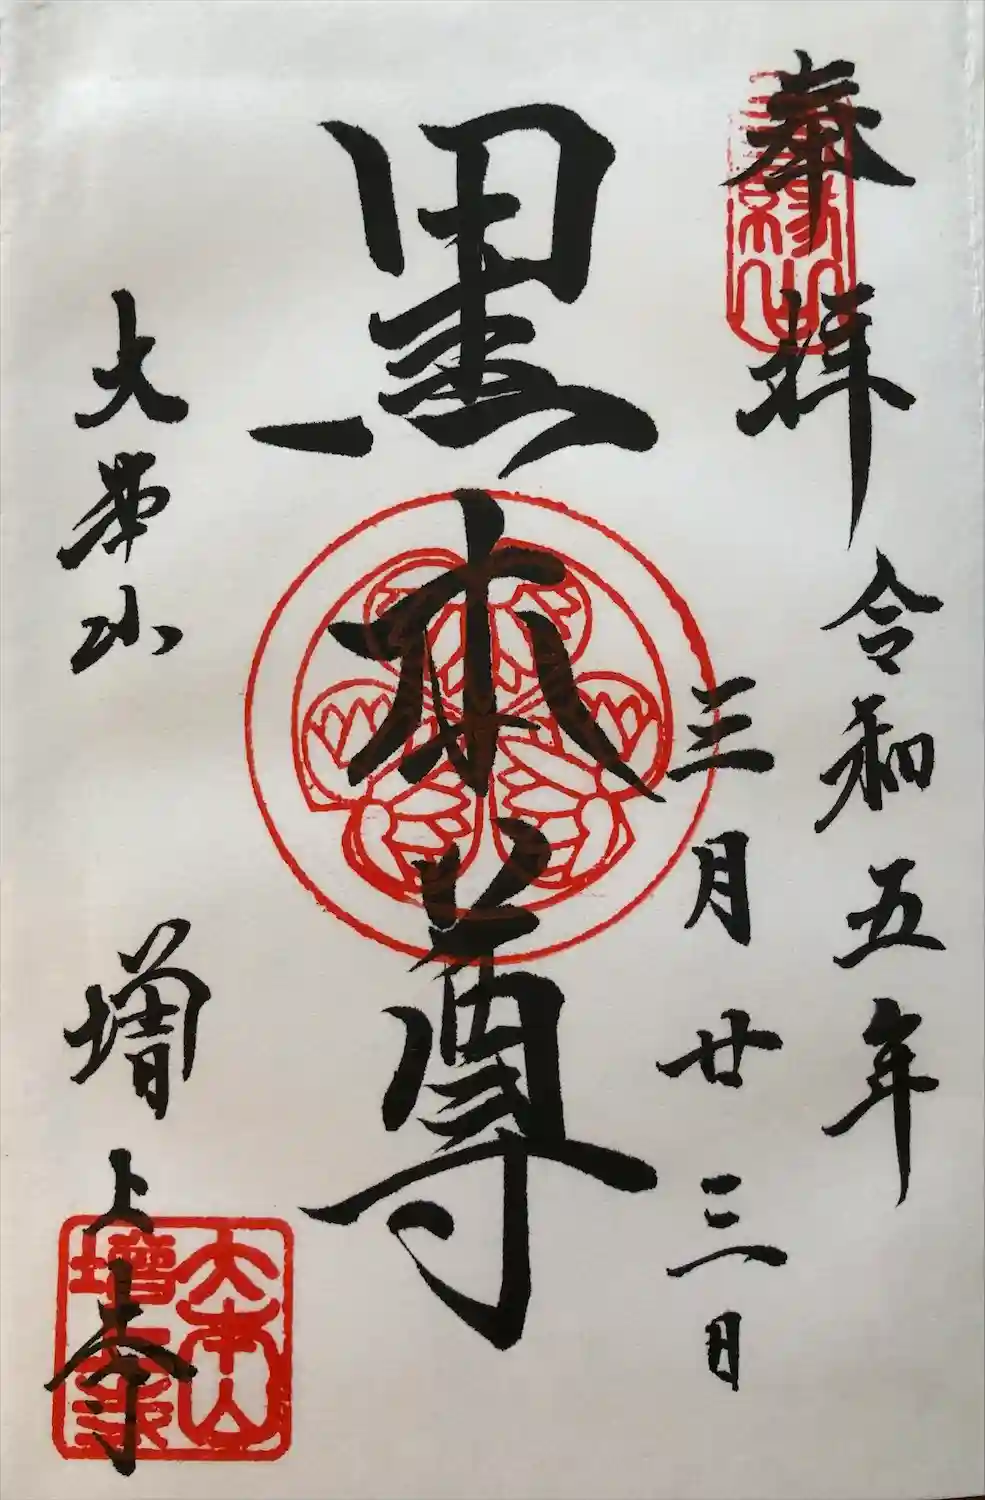 奉拝
令和五年
三月廿三日
黒本尊
大本山
増上寺
三縁山
大本山
増上寺